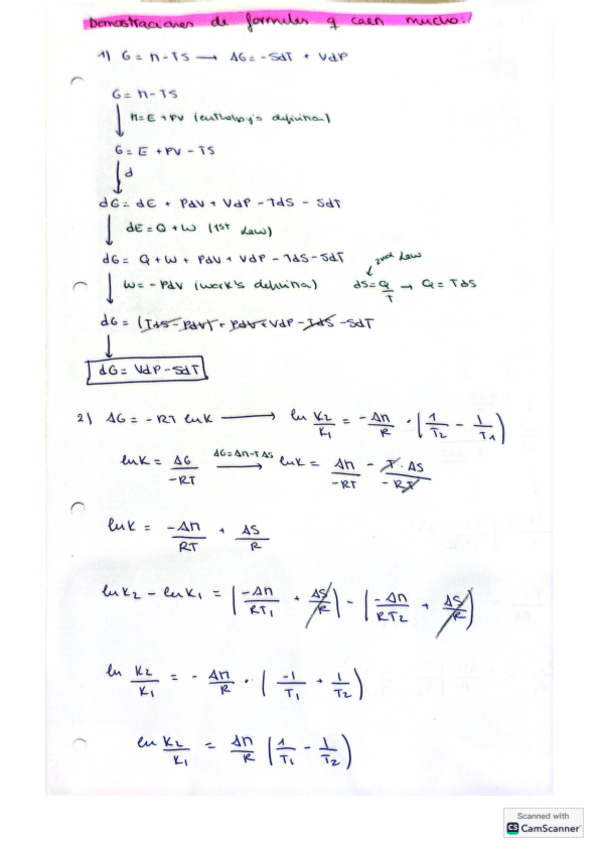 Demostraciones de formules q caen mucho:
1) G = H - TS → ΔG = -SdT + VdP
G = H - TS
H = E + PV (enthalpy's definition)
G = E + PV - TS
d
dG = dE + PdV + VdP - TdS - SdT
dE = Q + W (1st Law)
dG = Q + W + PdV + VdP - TdS - SdT
2nd Law
W = -PdV (work's definition) dS = Q/T → Q = TdS
dG = (TdS - PdV) + PdV + VdP - TdS - SdT
dG = VdP - SdT
2) ΔG = -RT lnK → ln K2/K1 = -ΔH/R · (1/T2 - 1/T1)
lnK = ΔG/-RT ΔG=ΔH-TΔS → lnK = ΔH/-RT - T·ΔS/-RT
lnK = -ΔH/RT + ΔS/R
lnK2 - lnK1 = (-ΔH/RT1 + ΔS/R) - (-ΔH/RT2 + ΔS/R)
ln K2/K1 = - ΔH/R · (-1/T1 + 1/T2)
ln K2/K1 = ΔH/R (1/T1 - 1/T2)
Scanned with
CS CamScanner